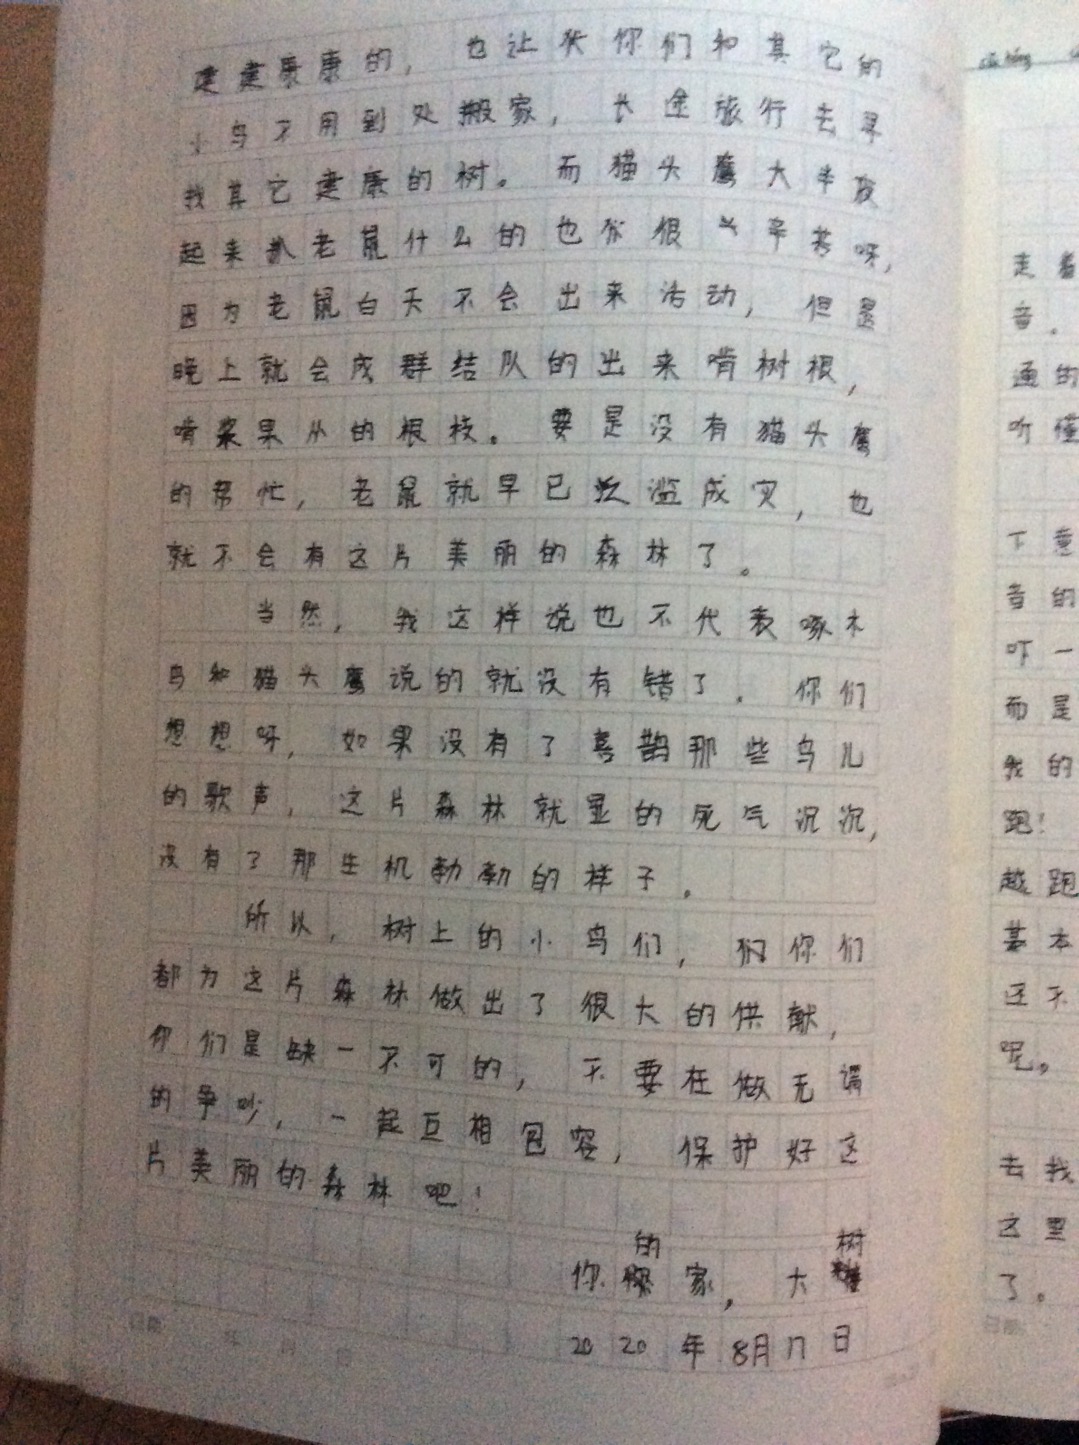 建建康康的，也让你们和其它的
小鸟不用到处搬家，长途旅行去寻
找其它建康的树。而猫头鹰大半夜
起来趴老鼠什么的也很辛苦呀，
因为老鼠白天不会出来活动，但是
晚上就会成群结队的出来啃树根，
啃浆果从的根枝。要是没有猫头鹰
的帮忙，老鼠就早已泛滥成灾，也
就不会有这片美丽的森林了。
当然，我这样说也不代表啄木
鸟和猫头鹰说的就没有错了。你们
想想呀，如果没有了喜鹊那些鸟儿
的歌声，这片森林就显的死气沉沉，
没有了那生机勃勃的样子。
所以，树上的小鸟们，你们
都为这片森林做出了很大的供献，
你们是缺一不可的，不要在做无谓
的争吵，一起互相包容，保护好这
片美丽的森林吧！
你的家，大树
2020年8月17日
走着
音。
通的
听懂
下意
音的
吓一
而是
我的
跑！
越跑
基本
还不
呢。
去找
这里
了。
日期